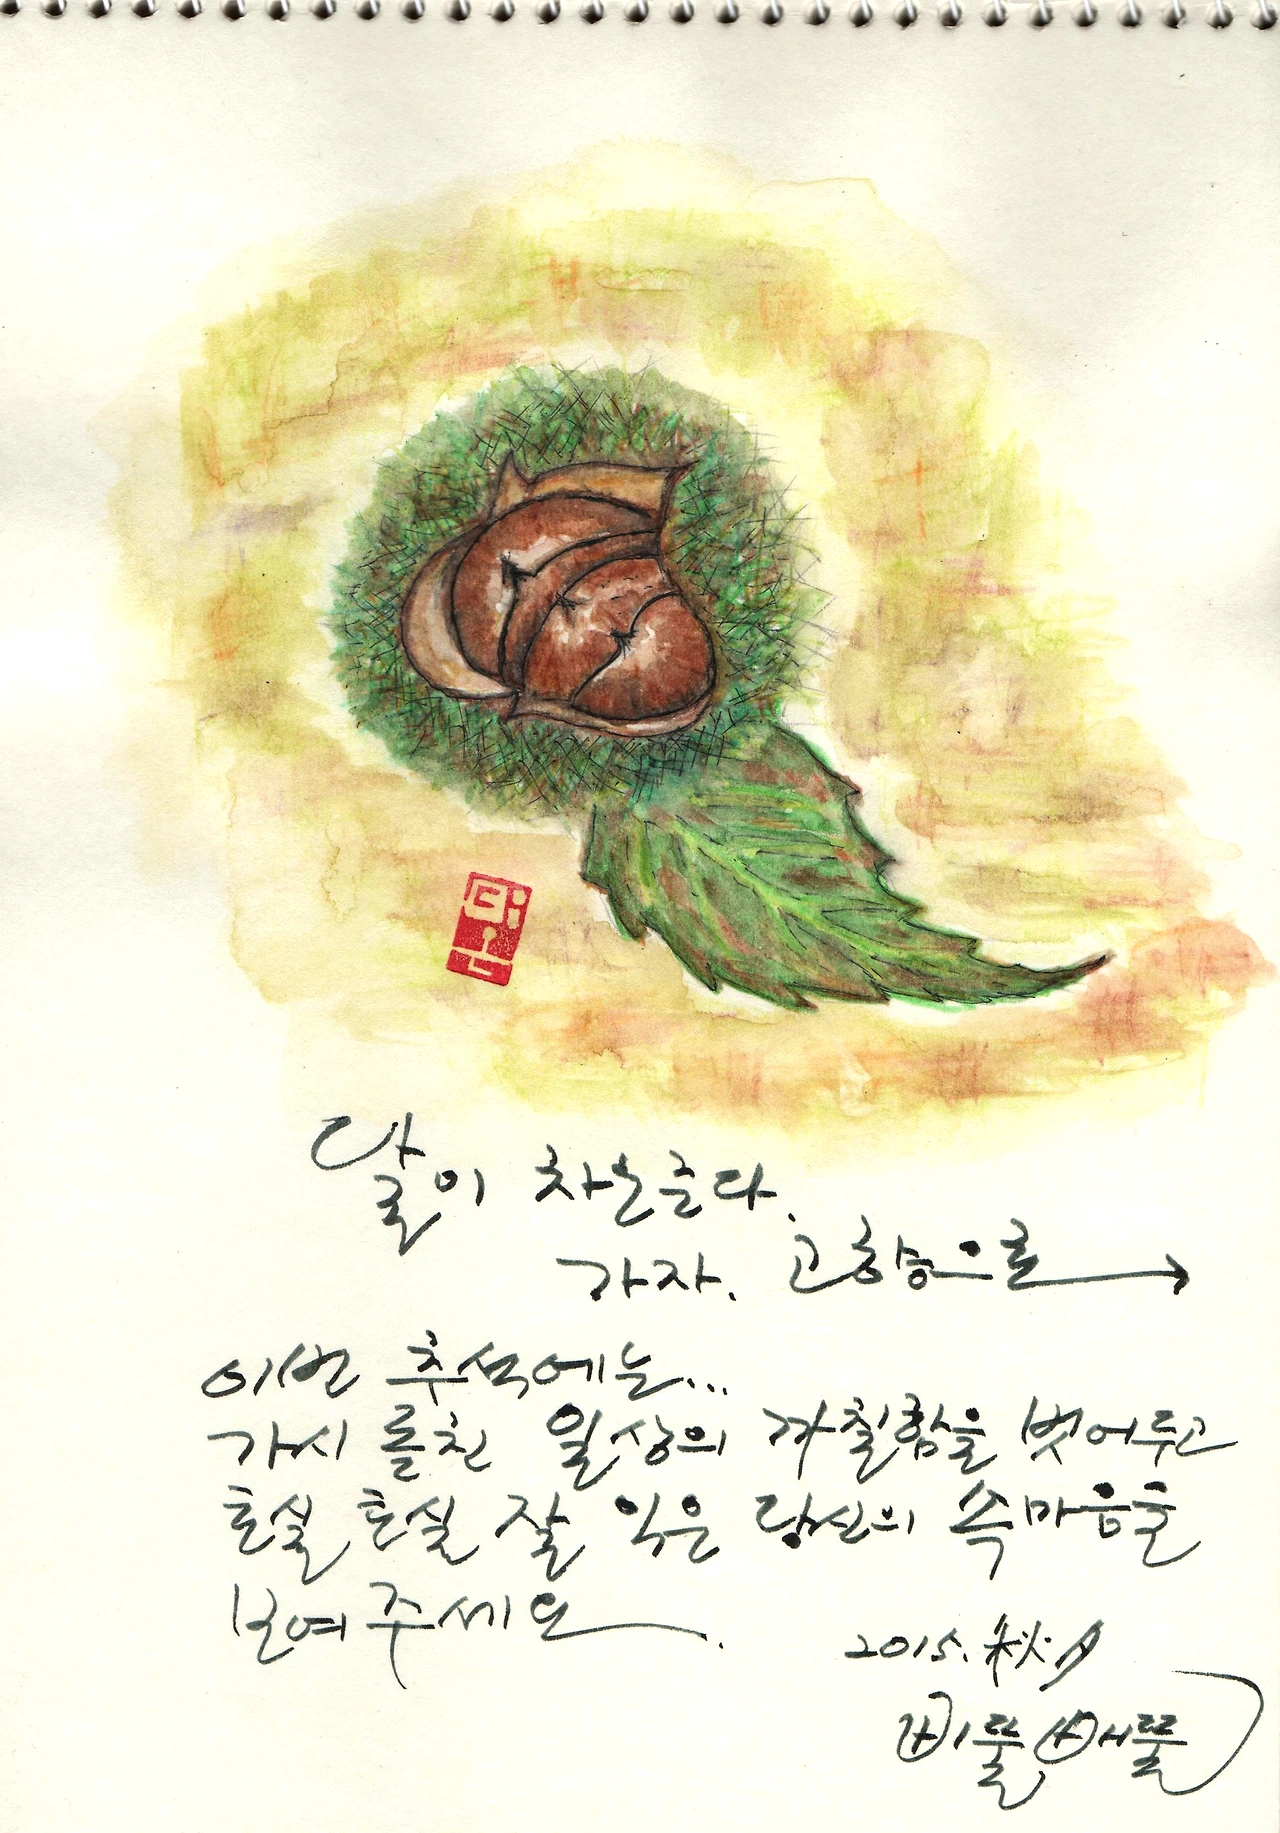 달이 차는구나.
가자. 고향으로
이번 추석에는...
가시 돋친 일상의 까칠함을 벗어두고
토실 토실 잘 익은 당신의 속마음을
보여주세요.
2015. 秋夕
삐뚤빼뚤